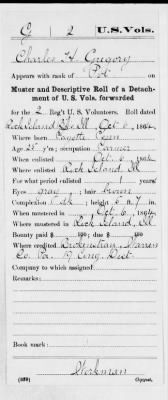 G 2 U.S. Vols.
Charles H. Gregory
Appears with rank of Pvt. on
Muster and Descriptive Roll of a Detach-
ment of U. S. Vols. forwarded
for the 2 Reg't U. S. Volunteers. Roll dated
Rock Island Ill, Oct 6, 1864.
Where born Fayette Penn
Age 28 y'rs; occupation Farmer
When enlisted Oct 6, 1864
Where enlisted Rock Island, Ill
For what period enlisted 1 years.
Eyes gray; hair brown
Complexion ; height 5 ft. 7 in.
When mustered in Oct. 6, 1864.
Where mustered in Rock Island, Ill
Bounty paid $ 100; due $ 100
Where credited Brokenstraw, Warren
Co. Pa. 19 Cong. Dist
Company to which assigned
Remarks:
Book mark:
Workman
(339) Copyist.